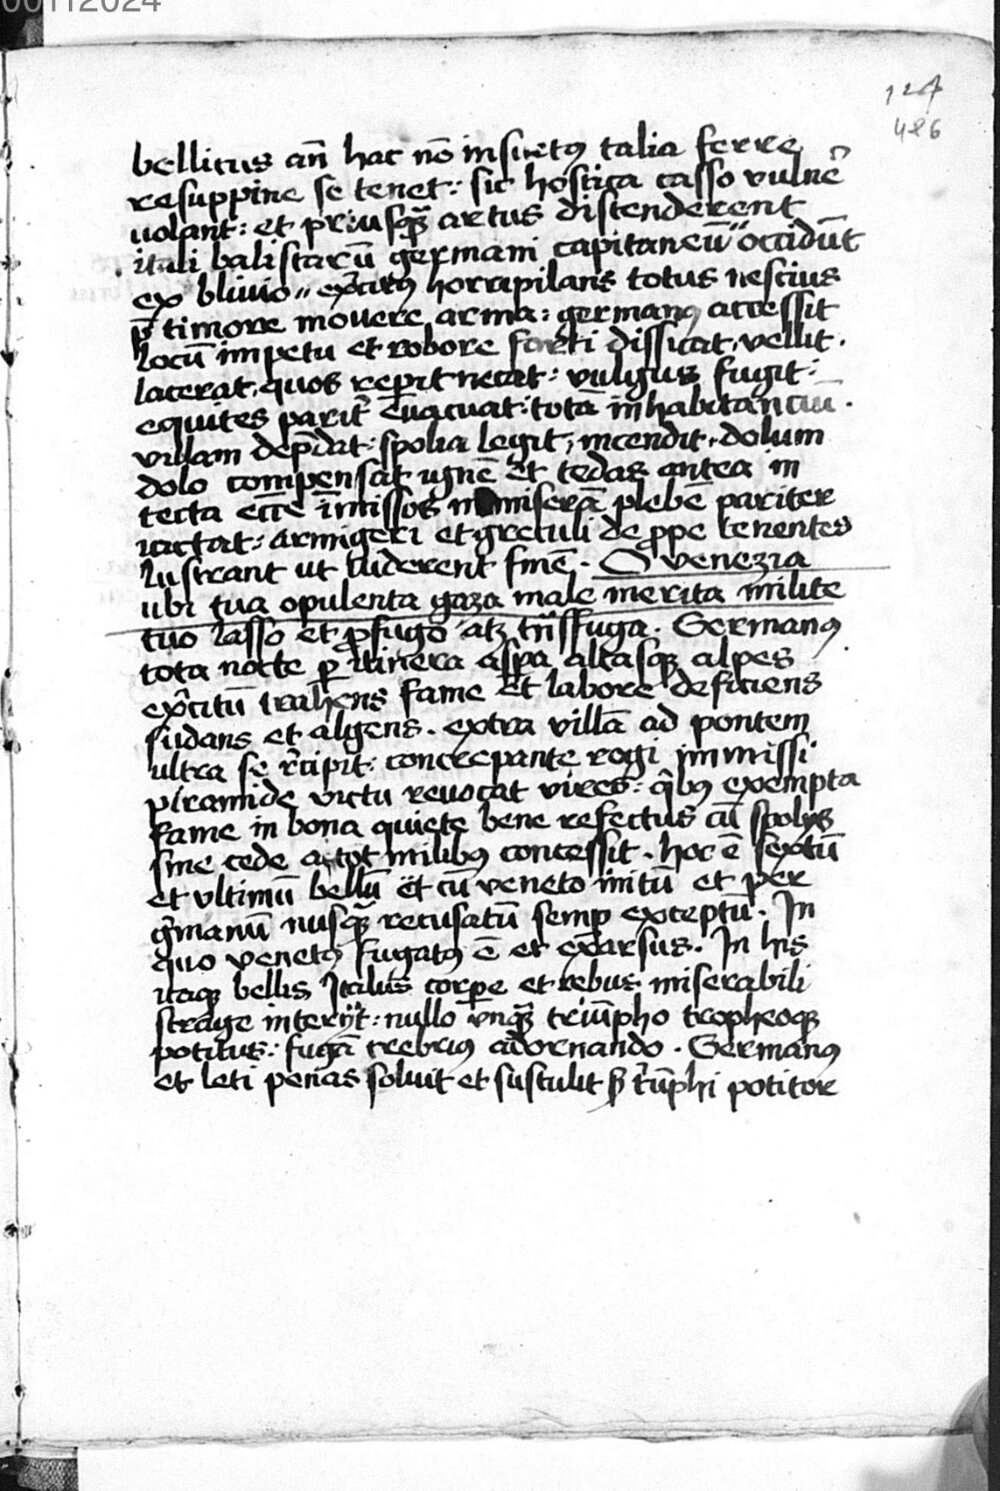 00112024
127
486
bellicus an̄ hac nō insuetꝰ talia ferre
resuppine se tenet : sic hostica casso vulne͛
uolant : et priusqꝫ̄ artus distenderent
itali balistarū germani capitaneū occidūt
ex bliuio exc̄itꝰ horripilans totus nescius
p̄ timore mouere arma : germanꝰ accessit
locū impetu et robore forti dissicat, vellit .
lacerat, quos rep̄it necat : vulgus fugit :
equites parit͛ euacuat : totā inhabitanciū .
villam dep̄dat : spolia legit, incendit, dolum
dolo compensat ignē et tedas antea in
tecta ecc̄e īmissos in miserā plebē pariter
iactat : armigeri et greculi de ꝓpe tenentes
lustrant ut luderent fınē . O venezia
ubi tua opulenta gaza male merita milite
tuo lasso et ꝓfugo atꝫ trn̄sfuga . Germanꝰ
tota nocte ꝑ itinera aspa altasqꝫ alpes
exc̄itū trahens fame et labore deficiens
sudans et algens . extra villā ad pontem
ultra se r̄cipit : concrepante rogi immissi
piramide victu reuocat vires : qͥbꝰ exempta
fame in bona quiete bene refectus cū spolijs
sine cede a tot milibꝰ concessit . hoc ē sextū
et vltimū bellū et cū veneto initū et per
g̃manū nusqꝫ̄ recusatū semp exceptū . In
quo venetꝰ fugatꝰ ē et exarsus . In his
itaqꝫ bellis Italus corꝑe et rebus miserabili
strage interijt : nullo vnqꝫ̄ triūpho tropheoqꝫ
potitus : fugā crebriꝰ adornando . Germanꝰ
et leti penas soluit et sustulit sꝫ tr̄ūphi potitor